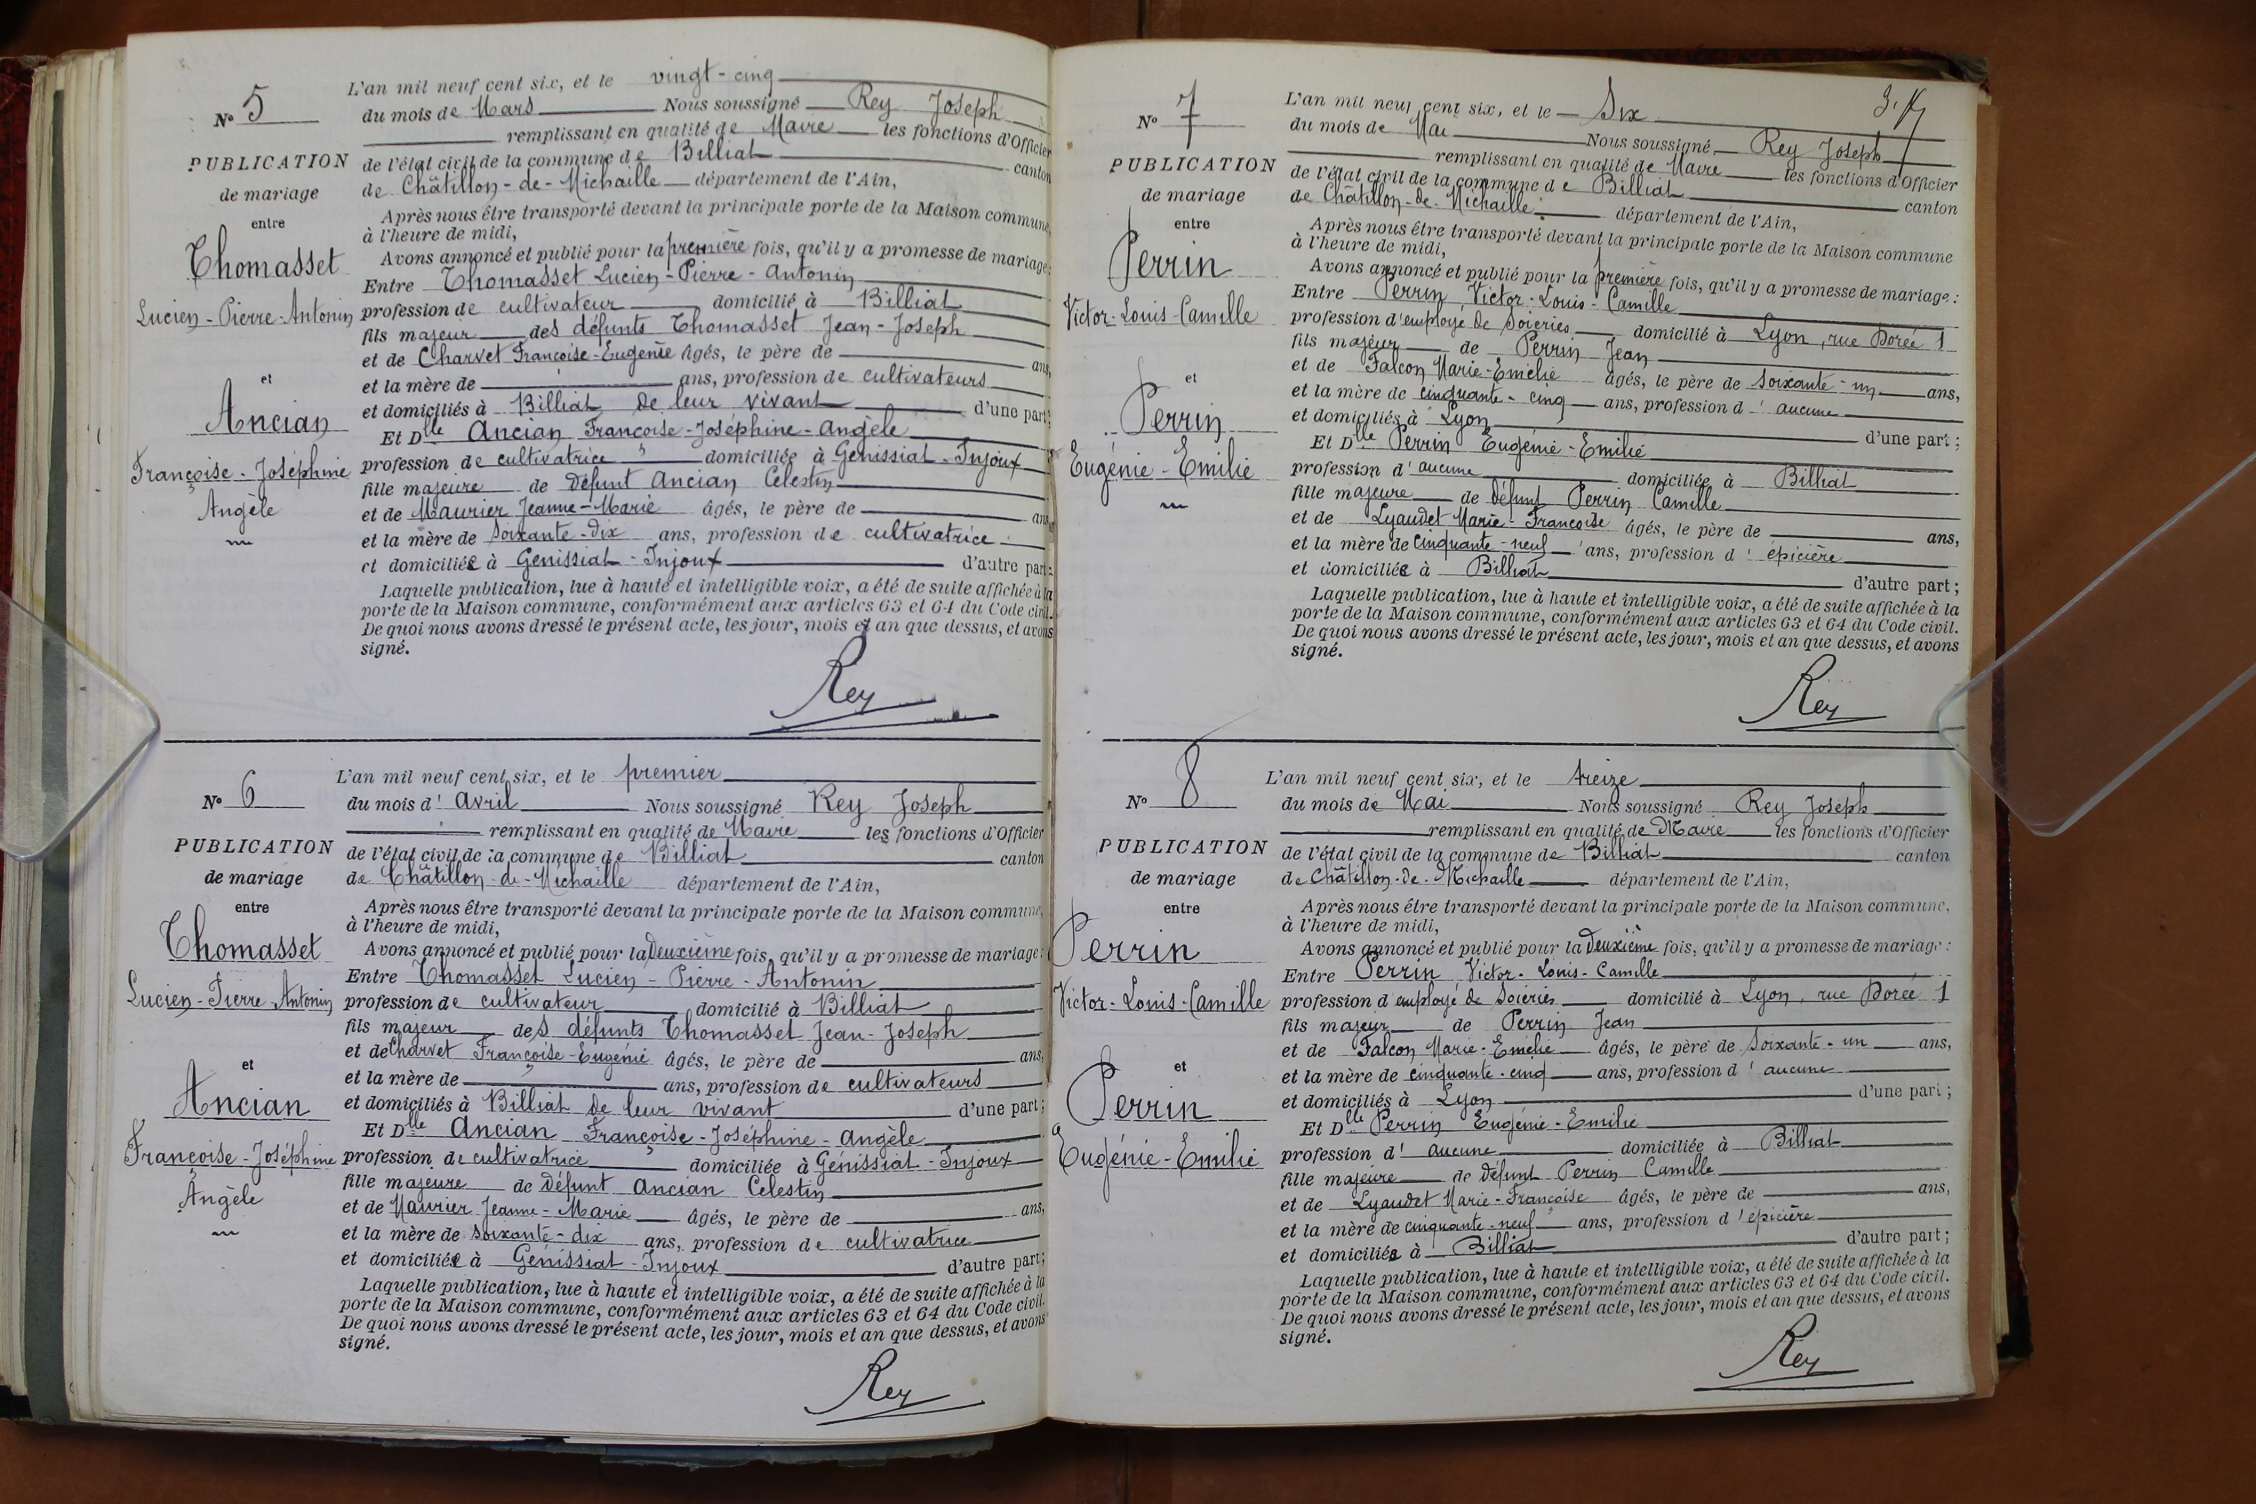 N° 5
PUBLICATION
de mariage
entre
Thomasset
Lucien-Pierre-Antonin
et
Ancian
Françoise-Joséphine
Angèle
L'an mil neuf cent six, et le vingt-cinq
du mois de Mars Nous soussigné Rey Joseph
remplissant en qualité de Maire les fonctions d'Officier
de l'état civil de la commune de Billiat canton
de Châtillon-de-Michaille département de l'Ain,
Après nous être transporté devant la principale porte de la Maison commune,
à l'heure de midi,
Avons annoncé et publié pour la première fois, qu'il y a promesse de mariage:
Entre Thomasset Lucien-Pierre-Antonin
profession de cultivateur domicilié à Billiat
fils majeur des défunts Thomasset Jean-Joseph
et de Charvet Françoise-Eugénie âgés, le père de ans,
et la mère de ans, profession de cultivateurs
et domiciliés à Billiat de leur vivant d'une part;
Et Dlle Ancian Françoise-Joséphine-Angèle
profession de cultivatrice domiciliée à Génissiat-Injoux
fille majeure de défunt Ancian Celestin
et de Maurier Jeanne-Marie âgés, le père de ans
et la mère de soixante-dix ans, profession de cultivatrice
et domiciliée à Génissiat-Injoux d'autre part;
Laquelle publication, lue à haute et intelligible voix, a été de suite affichée à la
porte de la Maison commune, conformément aux articles 63 et 64 du Code civil.
De quoi nous avons dressé le présent acte, les jour, mois et an que dessus, et avons
signé.
Rey
N° 6
PUBLICATION
de mariage
entre
Thomasset
Lucien-Pierre-Antonin
et
Ancian
Françoise-Joséphine
Angèle
L'an mil neuf cent six, et le premier
du mois d'avril Nous soussigné Rey Joseph
remplissant en qualité de Maire les fonctions d'Officier
de l'état civil de la commune de Billiat canton
de Châtillon-de-Michaille département de l'Ain,
Après nous être transporté devant la principale porte de la Maison commune,
à l'heure de midi,
Avons annoncé et publié pour la deuxième fois, qu'il y a promesse de mariage:
Entre Thomasset Lucien-Pierre-Antonin
profession de cultivateur domicilié à Billiat
fils majeur des défunts Thomasset Jean-Joseph
et de Charvet Françoise-Eugénie âgés, le père de ans,
et la mère de ans, profession de cultivateurs
et domiciliés à Billiat de leur vivant d'une part;
Et Dlle Ancian Françoise-Joséphine-Angèle
profession de cultivatrice domiciliée à Génissiat-Injoux
fille majeure de défunt Ancian Celestin
et de Maurier Jeanne-Marie âgés, le père de ans,
et la mère de soixante-dix ans, profession de cultivatrice
et domiciliée à Génissiat-Injoux d'autre part;
Laquelle publication, lue à haute et intelligible voix, a été de suite affichée à la
porte de la Maison commune, conformément aux articles 63 et 64 du Code civil.
De quoi nous avons dressé le présent acte, les jour, mois et an que dessus, et avons
signé.
Rey
N° 7
PUBLICATION
de mariage
entre
Perrin
Victor-Louis-Camille
et
Perrin
Eugénie-Emilie
L'an mil neuf cent six, et le Six
du mois de Mai Nous soussigné Rey Joseph
remplissant en qualité de Maire les fonctions d'Officier
de l'état civil de la commune de Billiat canton
de Châtillon-de-Michaille département de l'Ain,
Après nous être transporté devant la principale porte de la Maison commune
à l'heure de midi,
Avons annoncé et publié pour la première fois, qu'il y a promesse de mariage:
Entre Perrin Victor-Louis-Camille
profession d'employé de soieries domicilié à Lyon, rue Dorée 1
fils majeur de Perrin Jean
et de Falcon Marie-Emélie âgés, le père de soixante-un ans,
et la mère de cinquante-cinq ans, profession d'aucune
et domiciliés à Lyon d'une part;
Et Dlle Perrin Eugénie-Emilie
profession d'aucune domiciliée à Billiat
fille majeure de défunt Perrin Camille
et de Lyaudet Marie-Françoise âgés, le père de ans,
et la mère de cinquante-neuf ans, profession d'épicière
et domiciliée à Billiat d'autre part;
Laquelle publication, lue à haute et intelligible voix, a été de suite affichée à la
porte de la Maison commune, conformément aux articles 63 et 64 du Code civil.
De quoi nous avons dressé le présent acte, les jour, mois et an que dessus, et avons
signé.
Rey
N° 8
PUBLICATION
de mariage
entre
Perrin
Victor-Louis-Camille
et
Perrin
Eugénie-Emilie
L'an mil neuf cent six, et le treize
du mois de Mai Nous soussigné Rey Joseph
remplissant en qualité de Maire les fonctions d'Officier
de l'état civil de la commune de Billiat canton
de Châtillon-de-Michaille département de l'Ain,
Après nous être transporté devant la principale porte de la Maison commune,
à l'heure de midi,
Avons annoncé et publié pour la deuxième fois, qu'il y a promesse de mariage:
Entre Perrin Victor-Louis-Camille
profession d employé de soieries domicilié à Lyon, rue Dorée 1
fils majeur de Perrin Jean
et de Falcon Marie-Emélie âgés, le père de soixante-un ans,
et la mère de cinquante-cinq ans, profession d'aucune
et domiciliés à Lyon d'une part;
Et Dlle Perrin Eugénie-Emilie
profession d'aucune domiciliée à Billiat
fille majeure de défunt Perrin Camille
et de Lyaudet Marie-Françoise âgés, le père de ans,
et la mère de cinquante-neuf ans, profession d'épicière
et domiciliée à Billiat d'autre part;
Laquelle publication, lue à haute et intelligible voix, a été de suite affichée à la
porte de la Maison commune, conformément aux articles 63 et 64 du Code civil.
De quoi nous avons dressé le présent acte, les jour, mois et an que dessus, et avons
signé.
Rey